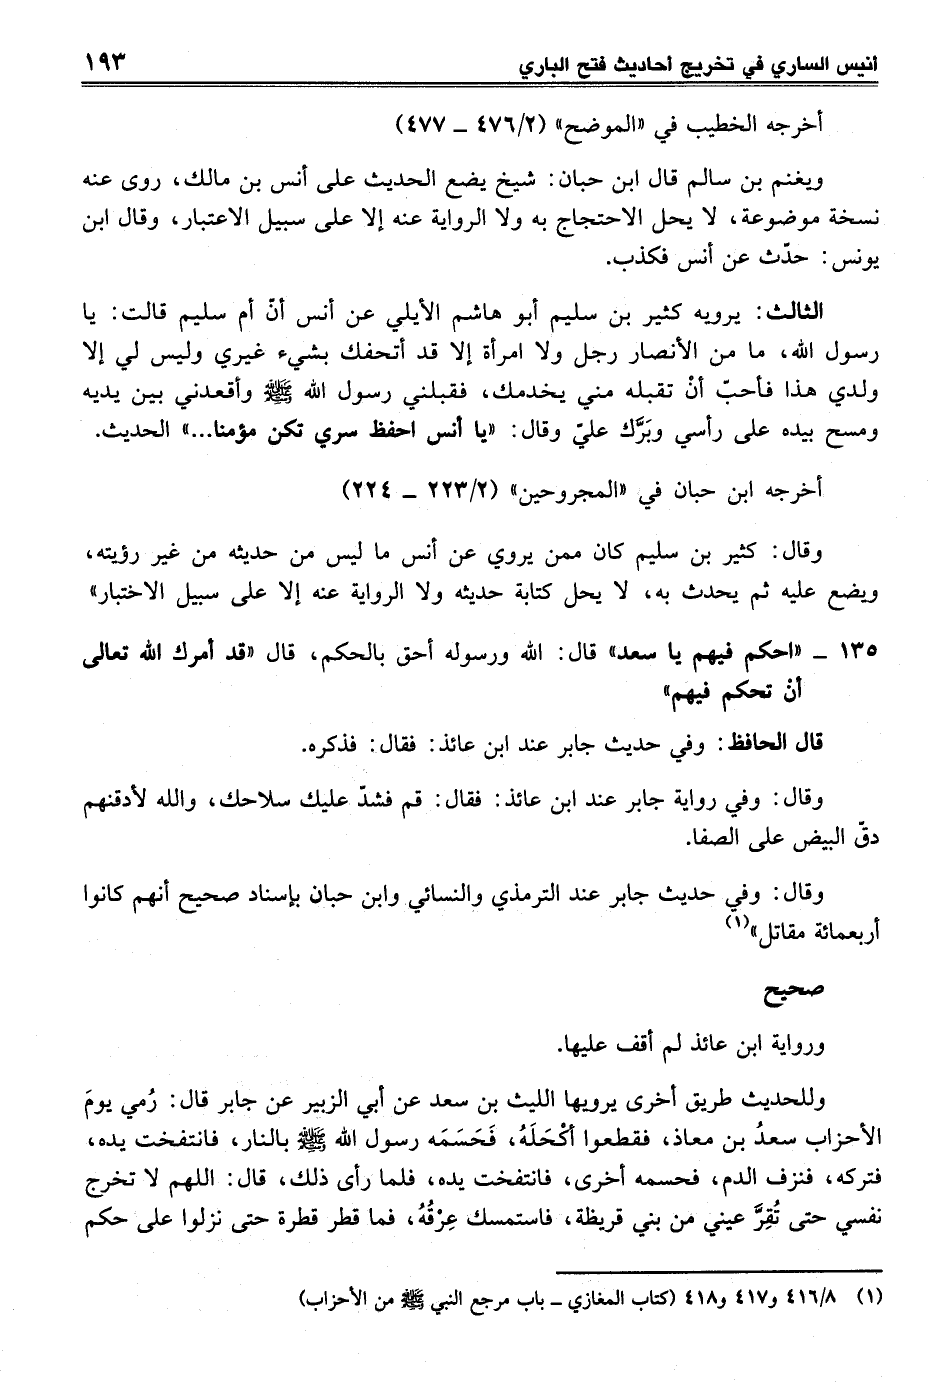 أنيس الساري في تخريج أحاديث فتح الباري ١٩٣
أخرجه الخطيب في «الموضح» (٤٧٦/٢ ـ ٤٧٧)
ويغنم بن سالم قال ابن حبان: شيخ يضع الحديث على أنس بن مالك، روى عنه
نسخة موضوعة، لا يحل الاحتجاج به ولا الرواية عنه إلا على سبيل الاعتبار، وقال ابن
يونس: حدّث عن أنس فكذب.
الثالث: يرويه كثير بن سليم أبو هاشم الأيلي عن أنس أنّ أم سليم قالت: يا
رسول الله، ما من الأنصار رجل ولا امرأة إلا قد أتحفك بشيء غيري وليس لي إلا
ولدي هذا فأحبّ أنْ تقبله مني يخدمك، فقبلني رسول الله ﷺ وأقعدني بين يديه
ومسح بيده على رأسي وبَرَّك عليّ وقال: «يا أنس احفظ سري تكن مؤمنا...» الحديث.
أخرجه ابن حبان في «المجروحين» (٢٢٣/٢ ـ ٢٢٤)
وقال: كثير بن سليم كان ممن يروي عن أنس ما ليس من حديثه من غير رؤيته،
ويضع عليه ثم يحدث به، لا يحل كتابة حديثه ولا الرواية عنه إلا على سبيل الاختبار»
١٣٥ ـ «احكم فيهم يا سعد» قال: الله ورسوله أحق بالحكم، قال «قد أمرك الله تعالى
أنْ تحكم فيهم»
قال الحافظ: وفي حديث جابر عند ابن عائذ: فقال: فذكره.
وقال: وفي رواية جابر عند ابن عائذ: فقال: قم فشدّ عليك سلاحك، والله لأدقنهم
دقّ البيض على الصفا.
وقال: وفي حديث جابر عند الترمذي والنسائي وابن حبان بإسناد صحيح أنهم كانوا
أربعمائة مقاتل»(١)
صحيح
ورواية ابن عائذ لم أقف عليها.
وللحديث طريق أخرى يرويها الليث بن سعد عن أبي الزبير عن جابر قال: رُمي يومَ
الأحزاب سعدُ بن معاذ، فقطعوا أكْحَلَهُ، فَحَسَمَه رسول الله ﷺ بالنار، فانتفخت يده،
فتركه، فنزف الدم، فحسمه أخرى، فانتفخت يده، فلما رأى ذلك، قال: اللهم لا تخرج
نفسي حتى تُقِرَّ عيني من بني قريظة، فاستمسك عِرْقُهُ، فما قطر قطرة حتى نزلوا على حكم
(١) ٤١٦/٨ و٤١٧ و٤١٨ (كتاب المغازي ـ باب مرجع النبي ﷺ من الأحزاب)